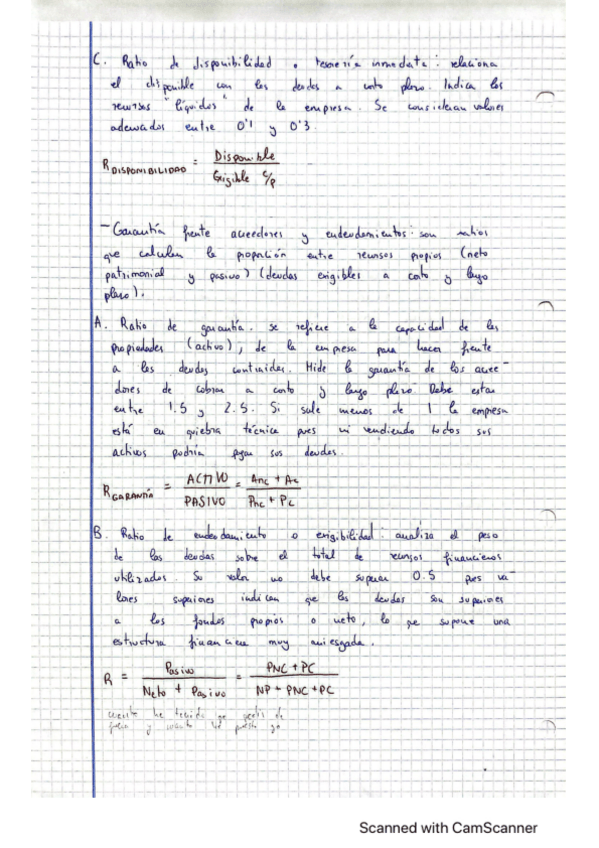 C. Ratio de disponibilidad o tesorería inmediata: relaciona
el disponible con las deudas a corto plazo. Indica los
recursos "líquidos" de la empresa. Se consideran valores
adecuados entre 0'1 y 0'3.
R DISPONIBILIDAD = Disponible / Exigible c/p
- Garantía frente acreedores y endeudamientos: son ratios
que calculan la proporción entre recursos propios (neto
patrimonial y pasivo) (deudas exigibles a corto y largo
plazo).
A. Ratio de garantía. se refiere a la capacidad de las
propiedades (activo), de la empresa para hacer frente
a las deudas contraidas. Mide la garantía de los acree-
dores de cobrar a corto y largo plazo Debe estar
entre 1.5 y 2.5. Si sale menos de 1 la empresa
está en quiebra técnica pues ni vendiendo todos sus
activos podría pagar sus deudas.
R GARANTÍA = ACTIVO / PASIVO = Anc + Ac / Pnc + Pc
B. Ratio de endeudamiento o exigibilidad: analiza el peso
de las deudas sobre el total de recursos financieros
utilizados. Su valor no debe superar 0.5 pues va-
lores superiores indican que las deudas son superiores
a los fondos propios o neto, lo que supone una
estructura financiera muy arriesgada.
R = Pasivo / Neto + Pasivo = PNC + PC / NP + PNC + PC
he tenido que de
y cuanto he puesto yo
Scanned with CamScanner